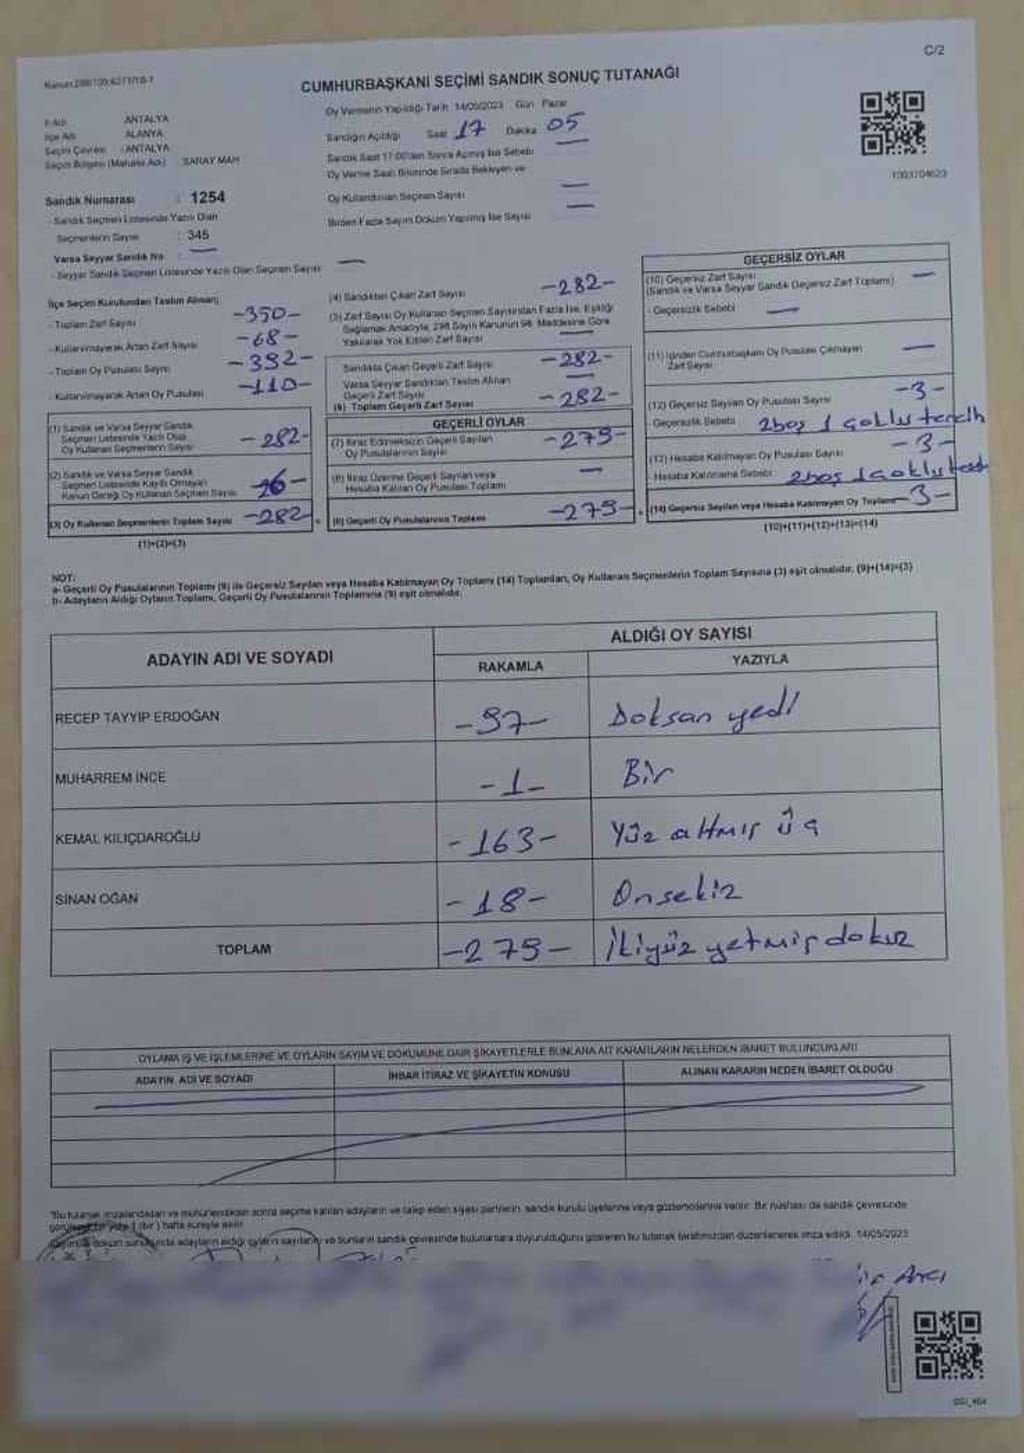 C/2
CUMHURBAŞKANI SEÇİMİ SANDIK SONUÇ TUTANAĞI
Oy Vermenin Yapıldığı Tarih 14/05/2023 Gün Pazar
İl Adı ANTALYA
İlçe Adı ALANYA
Seçim Çevresi : ANTALYA
Seçim Bölgesi (Mahalle Adı) SARAY MAH
Sandık Numarası : 1254
- Sandık Seçmen Listesinde Yazılı Olan
Seçmenlerin Sayısı : 345
Varsa Seyyar Sandık No : —
- Seyyar Sandık Seçmen Listesinde Yazılı Olan Seçmen Sayısı —
Sandığın Açıldığı Saat 17 Dakika 05
Sandık Saat 17.00'den Sonra Açılmış İse Sebebi —
Oy Verme Saati Bitiminde Sırada Bekleyen ve
Oy Kullandırılan Seçmen Sayısı —
Birden Fazla Sayım Döküm Yapılmış İse Sayısı —
1003704623
İlçe Seçim Kurulundan Teslim Alınan;
- Toplam Zarf Sayısı -350-
- Kullanılmayarak Artan Zarf Sayısı -68-
- Toplam Oy Pusulası Sayısı -392-
- Kullanılmayarak Artan Oy Pusulası -110-
(1) Sandık ve Varsa Seyyar Sandık
Seçmen Listesinde Yazılı Olup
Oy Kullanan Seçmenlerin Sayısı -282-
(2) Sandık ve Varsa Seyyar Sandık
Seçmen Listesinde Kayıtlı Olmayan
Kanun Gereği Oy Kullanan Seçmen Sayısı
(3) Oy Kullanan Seçmenlerin Toplam Sayısı -282-
(1)+(2)=(3)
(4) Sandıktan Çıkan Zarf Sayısı -282-
(5) Zarf Sayısı Oy Kullanan Seçmen Sayısından Fazla İse, Eşitliği
Sağlamak Amacıyla, 298 Sayılı Kanunun 98. Maddesine Göre
Yakılarak Yok Edilen Zarf Sayısı
Sandıkta Çıkan Geçerli Zarf Sayısı -282-
Varsa Seyyar Sandıktan Teslim Alınan
Geçerli Zarf Sayısı —
(6) Toplam Geçerli Zarf Sayısı -282-
GEÇERLİ OYLAR
(7) İtiraz Edilmeksizin Geçerli Sayılan
Oy Pusulalarının Sayısı -279-
(8) İtiraz Üzerine Geçerli Sayılan veya
Hesaba Katılan Oy Pusulası Toplamı —
(9) Geçerli Oy Pusulalarının Toplamı -279-
GEÇERSİZ OYLAR
(10) Geçersiz Zarf Sayısı —
(Sandık ve Varsa Seyyar Sandık Geçersiz Zarf Toplamı)
- Geçersizlik Sebebi —
(11) İçinden Cumhurbaşkanı Oy Pusulası Çıkmayan
Zarf Sayısı —
(12) Geçersiz Sayılan Oy Pusulası Sayısı -3-
- Geçersizlik Sebebi 2boş 1 çoklu tercih
(13) Hesaba Katılmayan Oy Pusulası Sayısı -3-
- Hesaba Katılmama Sebebi 2boş 1çoklu
(14) Geçersiz Sayılan veya Hesaba Katılmayan Oy Toplamı -3-
(10)+(11)+(12)+(13)=(14)
NOT:
a- Geçerli Oy Pusulalarının Toplamı (9) ile Geçersiz Sayılan veya Hesaba Katılmayan Oy Toplamı (14) Toplamları, Oy Kullanan Seçmenlerin Toplam Sayısına (3) eşit olmalıdır. (9)+(14)=(3)
b- Adayların Aldığı Oyların Toplamı, Geçerli Oy Pusulalarının Toplamına (9) eşit olmalıdır.
ADAYIN ADI VE SOYADI ALDIĞI OY SAYISI
RAKAMLA YAZIYLA
RECEP TAYYİP ERDOĞAN -97- Doksan yedi
MUHARREM İNCE -1- Bir
KEMAL KILIÇDAROĞLU -163- Yüz altmış üç
SİNAN OĞAN -18- Onsekiz
TOPLAM -279- İkiyüz yetmiş dokuz
OYLAMA İŞ VE İŞLEMLERİNE VE OYLARIN SAYIM VE DÖKÜMÜNE DAİR ŞİKAYETLERLE BUNLARA AİT KARARLARIN NELERDEN İBARET BULUNDUKLARI
ADAYIN ADI VE SOYADI İHBAR İTİRAZ VE ŞİKAYETİN KONUSU ALINAN KARARIN NEDEN İBARET OLDUĞU
*Bu tutanak imzalandıktan ve mühürlendikten sonra seçime katılan adayların ve talep eden siyasi partilerin, sandık kurulu üyelerine veya gözlemcilerine verilir. Bir nüshası da sandık çevresinde
görülecek bir yere 1 (bir) hafta süreyle asılır.
dökümü sonucunda adayların aldığı oyların sayılarını ve bunların sandık çevresinde bulunanlara duyurulduğunu gösteren bu tutanak tarafımızdan düzenlenerek imza edildi. 14/05/2023
Avcı